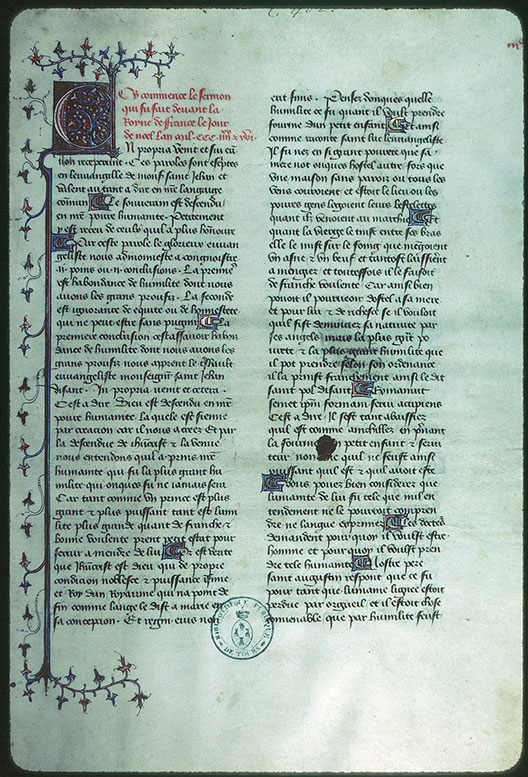 Cy commence le sermon
qui fu fait devant la
Royne de france le jour
de noel lan mil . ccc . iiii
IN propria venit et sui eum
non receperunt . Ces paroles sont escriptes
en leuvangille de monsr saint Jehan et
valent autant a dire en nre language
commun Le souverain est descendu
en nre povre humanite . Petitement
est receu de ceulx quil a plus honnoure
Par ceste parole le glorieux euvan
geliste nous admonneste a congnoistre
.ii. poins ou .ii. conclusions . La premiere
est habondance de humilite dont nous
avons les grans proufiz . La seconde
est ignorance de equite ou de honnestete
qui ne peut estre sans pugnir La
premiere conclusion est assavoir habon
dance de humilite dont nous avons les
grans proufiz nous aprent le dessusdit
euvangeliste monseigneur saint Jehan
disant . In propria venit et cetera .
Cest a dire Dieu est descendu en nre
povre humanite la quele est sienne
par creacion car il nous a creez et par
la descendue de ihucrist et la venue
nous entendons quil a prins nre
humanite qui fu la plus grant hu
milite qui onques fu ne jamais sera
Car tant comme un prince est plus
grant et plus puissant tant est lumi
lite plus grande quant de franche et
bonne voulente prent petit estat pour
servir a mendre de lui Or est verite
que ihucrist est dieu qui de propre
condicion noblesse et puissance est sires
et Roy dun Royaume qui na point de
fin comme lange le dist a marie en
sa concepcion . Et regni eius non
erit finis . Pensez donques quelle
humilite ce fu quant il voult prendre
fourme dun petit enfant Et ainsi
comme raconte saint luc leuvangeliste
Il fu nez en si grant povrete que sa
mere not onques hostel autre fors que
une maison sans paroiz ou tous les
vens couroient et estoit le lieu ou les
povres gens logoient leurs bestelettes
quant ilz venoient au marchie Et
quant la vierge le tinst entre ses bras
elle le mist sur le foing que mengoient
un asne et un beuf et tantost laissierent
a mengier et toutesfois il le faisoit
de franche voulente Car aussi bien
povoit il pourveoir dostel a sa mere
et pour lui et de richesse se il vouloit
quil fist denoncier sa nativite par
ses angels mais la plus grant po
vrete et la plus grant humilite que
il pot prendre selon son ordenance
il la prinst franchement ainsi le dit
saint pol disant Exinanivit
semet ipsum formam servi accipiens
Cest a dire . Il sest tant abaissiez
quil est comme anichillez en prenant
la fourme petit enfant et servi
teur non quil ne feust aussi
puissant quil est et quil avoit este
Vous povez bien considerer que
lumanite de lui fu tele que nul en
tendement ne le pourroit compren
dre ne langue exprimer Les docteurs
demandent pour quoy il voulst estre
homme et pour quoy il voulst pren
dre tele humanite Nostre pere
saint augustin respont que ce fu
pour tant que lumaine lignee estoit
perdue par orgueil et il estoit chose
convenable que par humilite feust
BIBLIOTHEQUE PUBLIQUE
DE TOURS